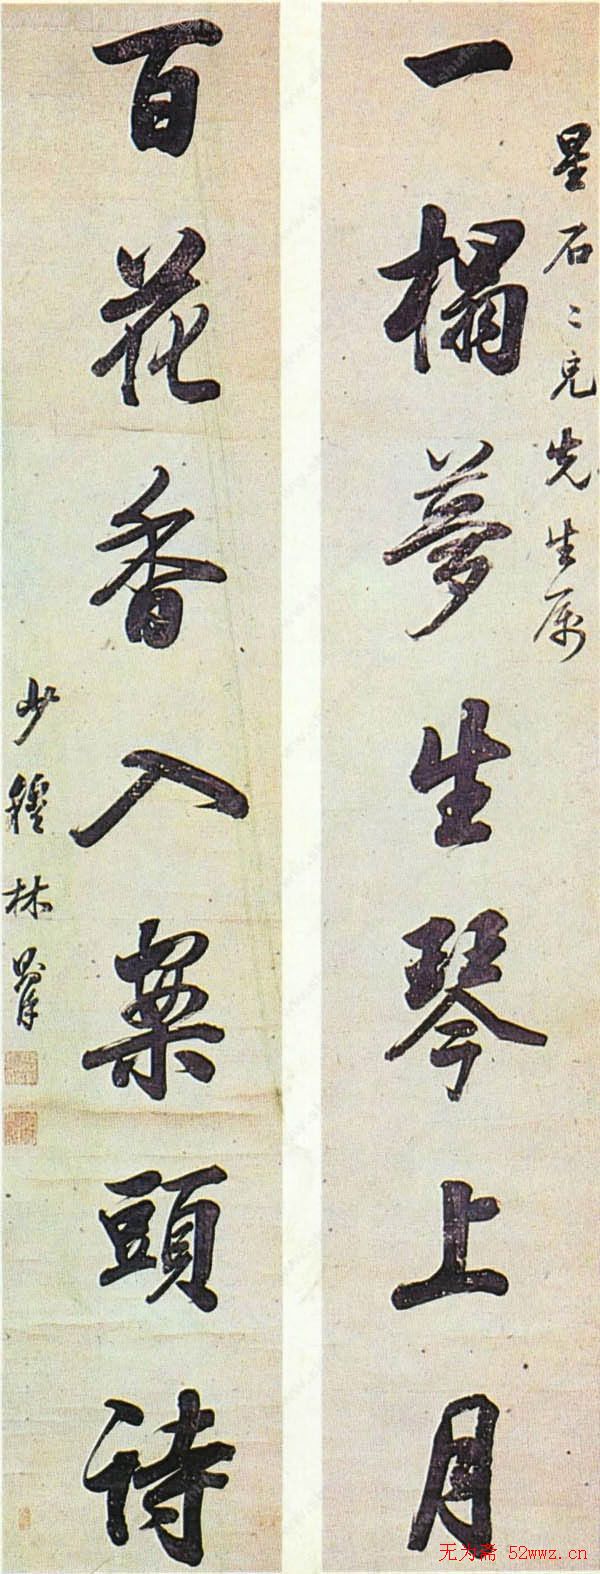 星石二兄先生属
一榻夢生琴上月
百花香入案頭詩
少穆林則徐
无为斋 52wwz.cn